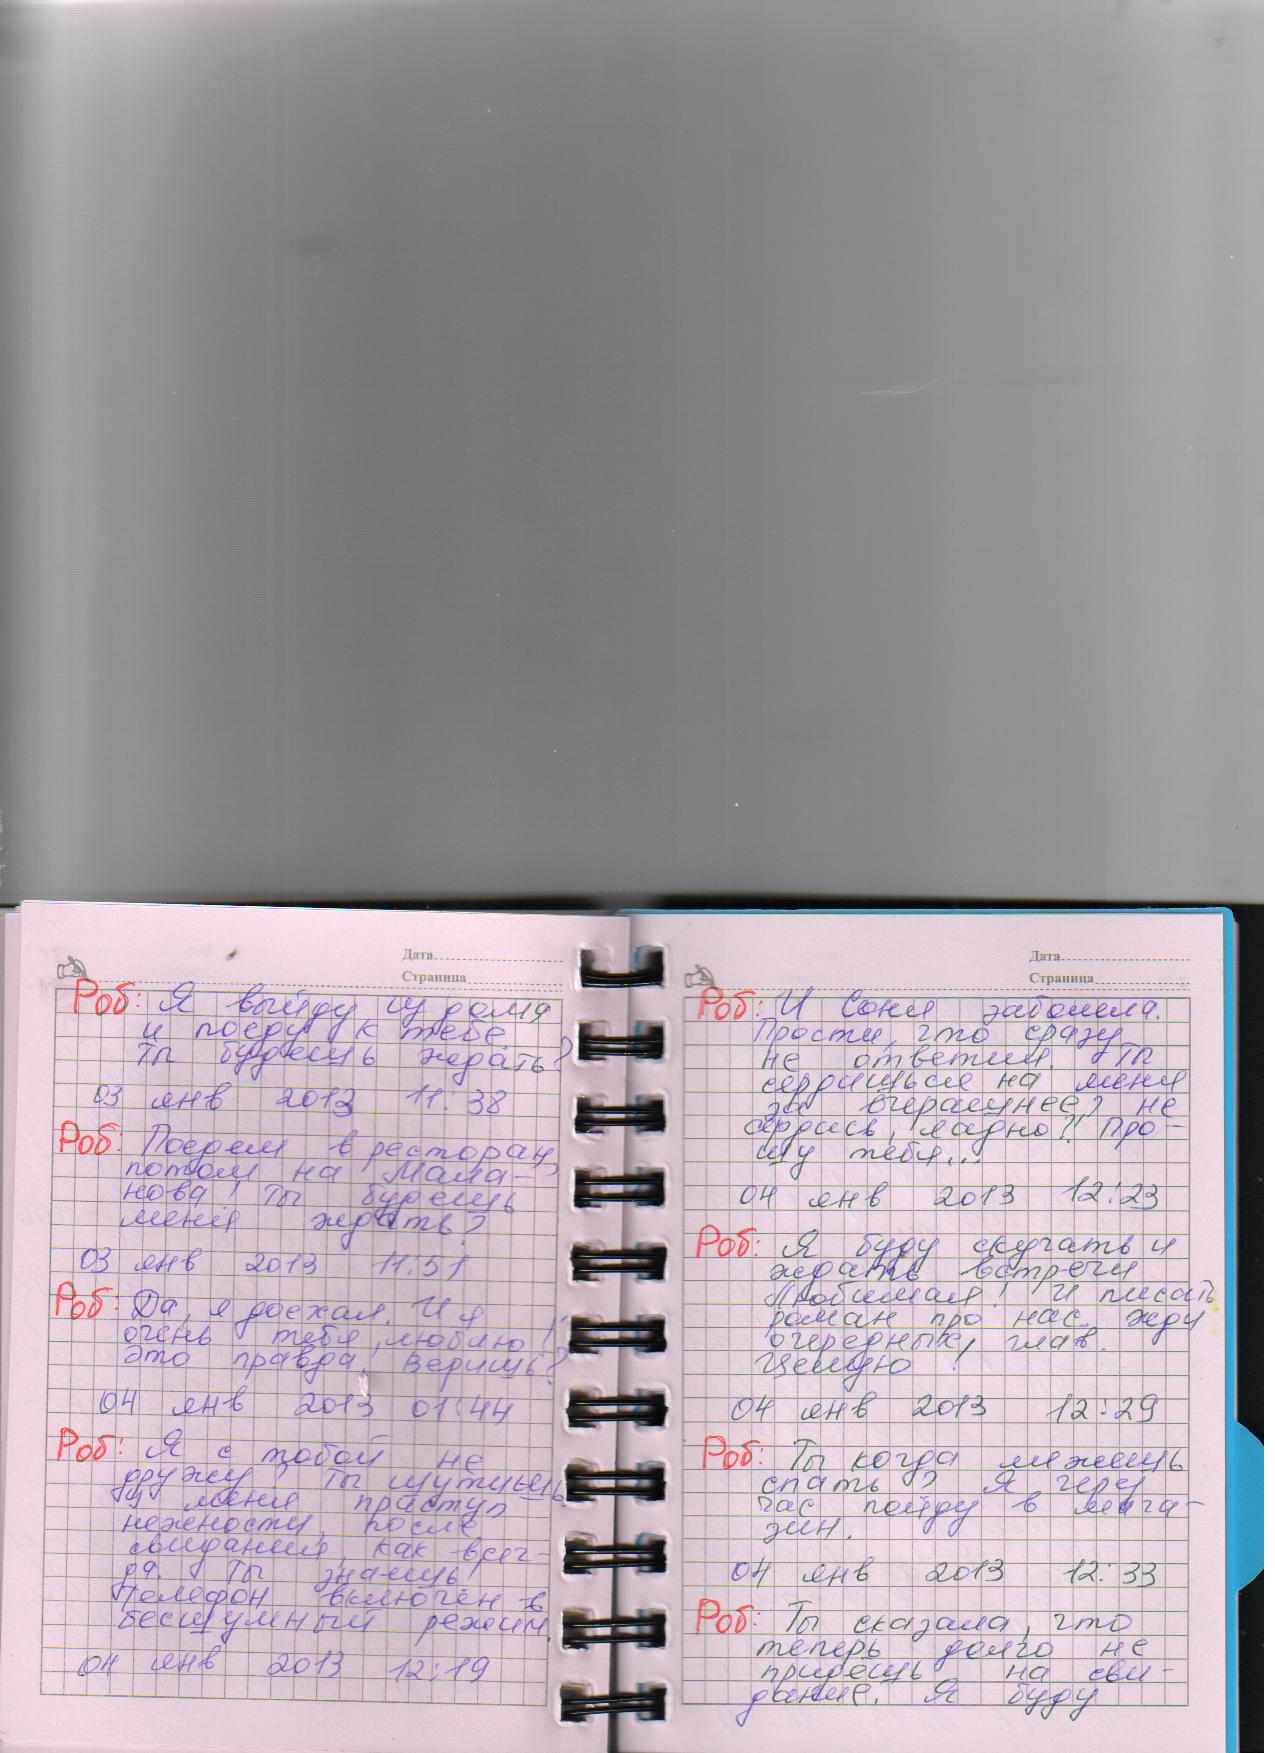 Дата
Страница
Роб: Я выйду из дома
и поеду к тебе
Ты будешь ждать?
03 янв 2013 11:38
Роб: Поедем в ресторан,
потом на Мама-
нова! Ты будешь
меня ждать?
03 янв 2013 11:51
Роб: Да, я доехал. И я
очень тебя люблю!
Это правда. Веришь?
04 янв 2013 01:44
Роб: Я с тобой не
дружу? Ты шутишь.
У меня приступ
нежности, после
свидания, как всег-
да. Ты знаешь!
Телефон включён в
бесшумный режим.
04 янв 2013 12:19
Дата
Страница
Роб: И Соня заболела.
Прости, что сразу
не ответил. Ты
сердишься на меня
за вчерашнее? Не
сердись, ладно?! Про-
шу тебя...
04 янв 2013 12:23
Роб: Я буду скучать и
ждать встречи
Любимая! И писать
роман про нас. Жди
очередных глав.
Целую!
04 янв 2013 12:29
Роб: Ты когда ляжешь
спать? Я через
час пойду в мага-
зин.
04 янв 2013 12:33
Роб: Ты сказала, что
теперь долго не
придёшь на сви-
дание. Я буду